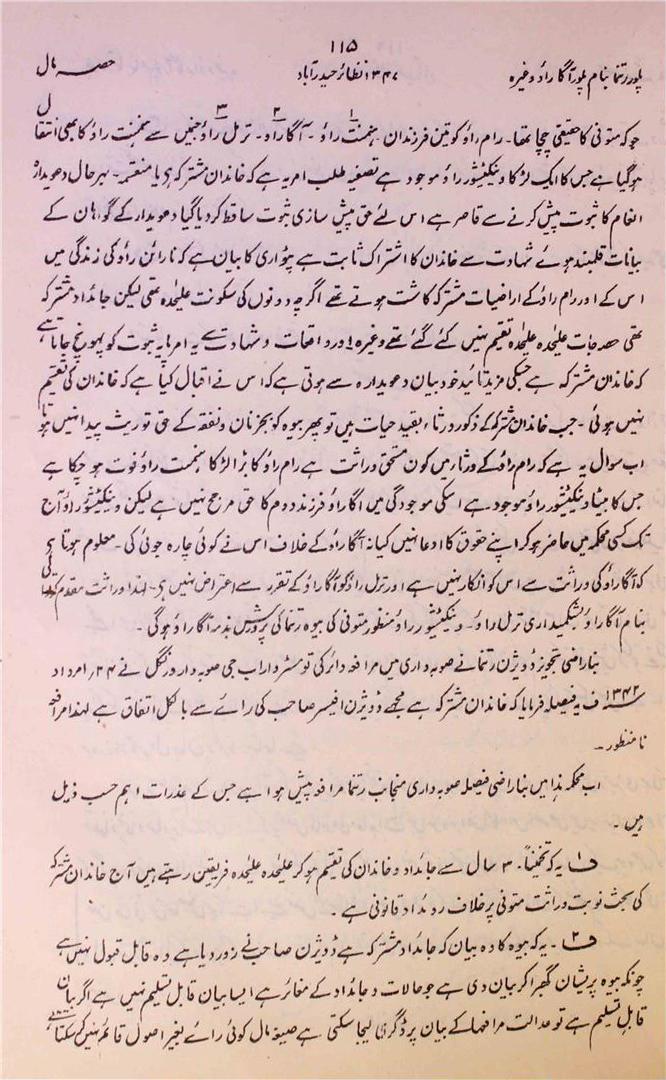 ۱۱۵
پلور رتنما بنام پلور آگا راؤ وغیرہ ۱۳۴۷ نظائر حیدرآباد حصہ مال
جو کہ متوفی کا حقیقی چچا تھا۔ رام راؤ کو تین فرزندان۔ ۱ ہنمنت راؤ۔ ۲ آگا راؤ۔ ۳ ترمل راؤ جنمیں سے ہنمنت راؤ کا بھی انتقال
ہوگیا ہے جس کا ایک لڑکا وینکٹیشور راؤ موجود ہے تصفیہ طلب امر یہ ہے کہ خاندان مشترکہ ہے یا منقسم۔ بہر حال دعویدارہ
انقسام کا ثبوت پیش کرنے سے قاصر ہے اس لئے حق پیش سازی ثبوت ساقط کردیا گیا دعویدار کے گواہان کے
بیانات قلمبند ہوئے شہادت سے خاندان کا اشتراک ثابت ہے پٹواری کا بیان ہے کہ نارائن راؤ کی زندگی میں
اس کے اور رام راؤ کے اراضیات مشترکہ کاشت ہوتے تھے اگرچہ دونوں کی سکونت علیٰحدہ تھی لیکن جائداد مشترکہ
تھی حصہ جات علیٰحدہ علیٰحدہ تقسیم نہیں کئے گئے تھے وغیرہ اور واقعات و شہادت سے یہ امر پایہ ثبوت کو پہونچ جاتا ہے
کہ خاندان مشترکہ ہے جسکی مزید تائید خود بیان دعویدارہ سے ہوتی ہے کہ اس نے اقبال کیا ہے کہ خاندان کی تقسیم
نہیں ہوئی۔ جب خاندان مشترکہ کے ذکور ورثاء بقید حیات ہیں تو پھر بیوہ کو بجز نان و نفقہ کے حق توریث پیدا نہیں ہوتا
اب سوال یہ ہے کہ رام راؤ کے ورثا میں کون مستحق وراثت ہے رام راؤ کا بڑا لڑکا ہنمنت راؤ فوت ہو چکا ہے
جس کا بیٹا وینکٹیشور راؤ موجود ہے اسکی موجودگی میں آگا راؤ فرزند دوم کا حق مرجح نہیں ہے لیکن وینکٹیشور راؤ آج
تک کسی محکمہ میں حاضر ہوکر اپنے حقوق کا ادعا نہیں کیا نہ آگا راؤ کے خلاف اس نے کوئی چارہ جوئی کی۔ معلوم ہوتا ہے
کہ آگا راؤ کی وراثت سے اس کو انکار نہیں ہے اور ترمل راؤ کو آگا راؤ کے تقرر سے اعتراض نہیں ہے۔ لہذا وراثت مقدم کوتوالی
بنام آگا راؤ بشکمیداری ترمل راؤ۔ وینکٹیشور راؤ منظور متوفی کی بیوہ رتنما کی پرورش بذمہ آگا راؤ ہوگی۔
بناراضی تجویز ڈویژن رتنما نے صوبہ داری میں مرافعہ دائر کی تو مسٹر داراب جی صوبہ دار ورنگل نے ۲۴؍ امرداد
۱۳۴۲ ف یہ فیصلہ فرمایا کہ خاندان مشترکہ ہے مجھے ڈویژن افیسر صاحب کی رائے سے بالکل اتفاق ہے لہذا مرافعہ
نامنظور۔
اب محکمہ ہذا میں بناراضی فیصلہ صوبہ داری منجانب رتنما مرافعہ پیش ہوا ہے جس کے عذرات اہم حسب ذیل
ہیں۔
ف۱ یہ کہ تخمیناً ۳۰ سال سے جائداد و خاندان کی تقسیم ہوکر علیٰحدہ علیٰحدہ فریقین رہتے ہیں آج خاندان مشترکہ
کی بحث نوبت وراثت متوفی پر خلاف روئداد قانونی ہے۔
ف۲۔ یہ کہ بیوہ کا وہ بیان کہ جائداد مشترکہ ہے ڈویژن صاحب نے زور دیا ہے وہ قابل قبول نہیں ہے
چونکہ بیوہ پریشان گھبرا کر بیان دی ہے جو حالات و جائداد کے مغائر ہے ایسا بیان قابل تسلیم نہیں ہے اگر بیان
قابل تسلیم ہے تو عدالت مرافعہا کے بیان پر ڈگری لیجا سکتی ہے صیغہ مال کوئی رائے بغیر اصول قائم نہیں کرسکتا